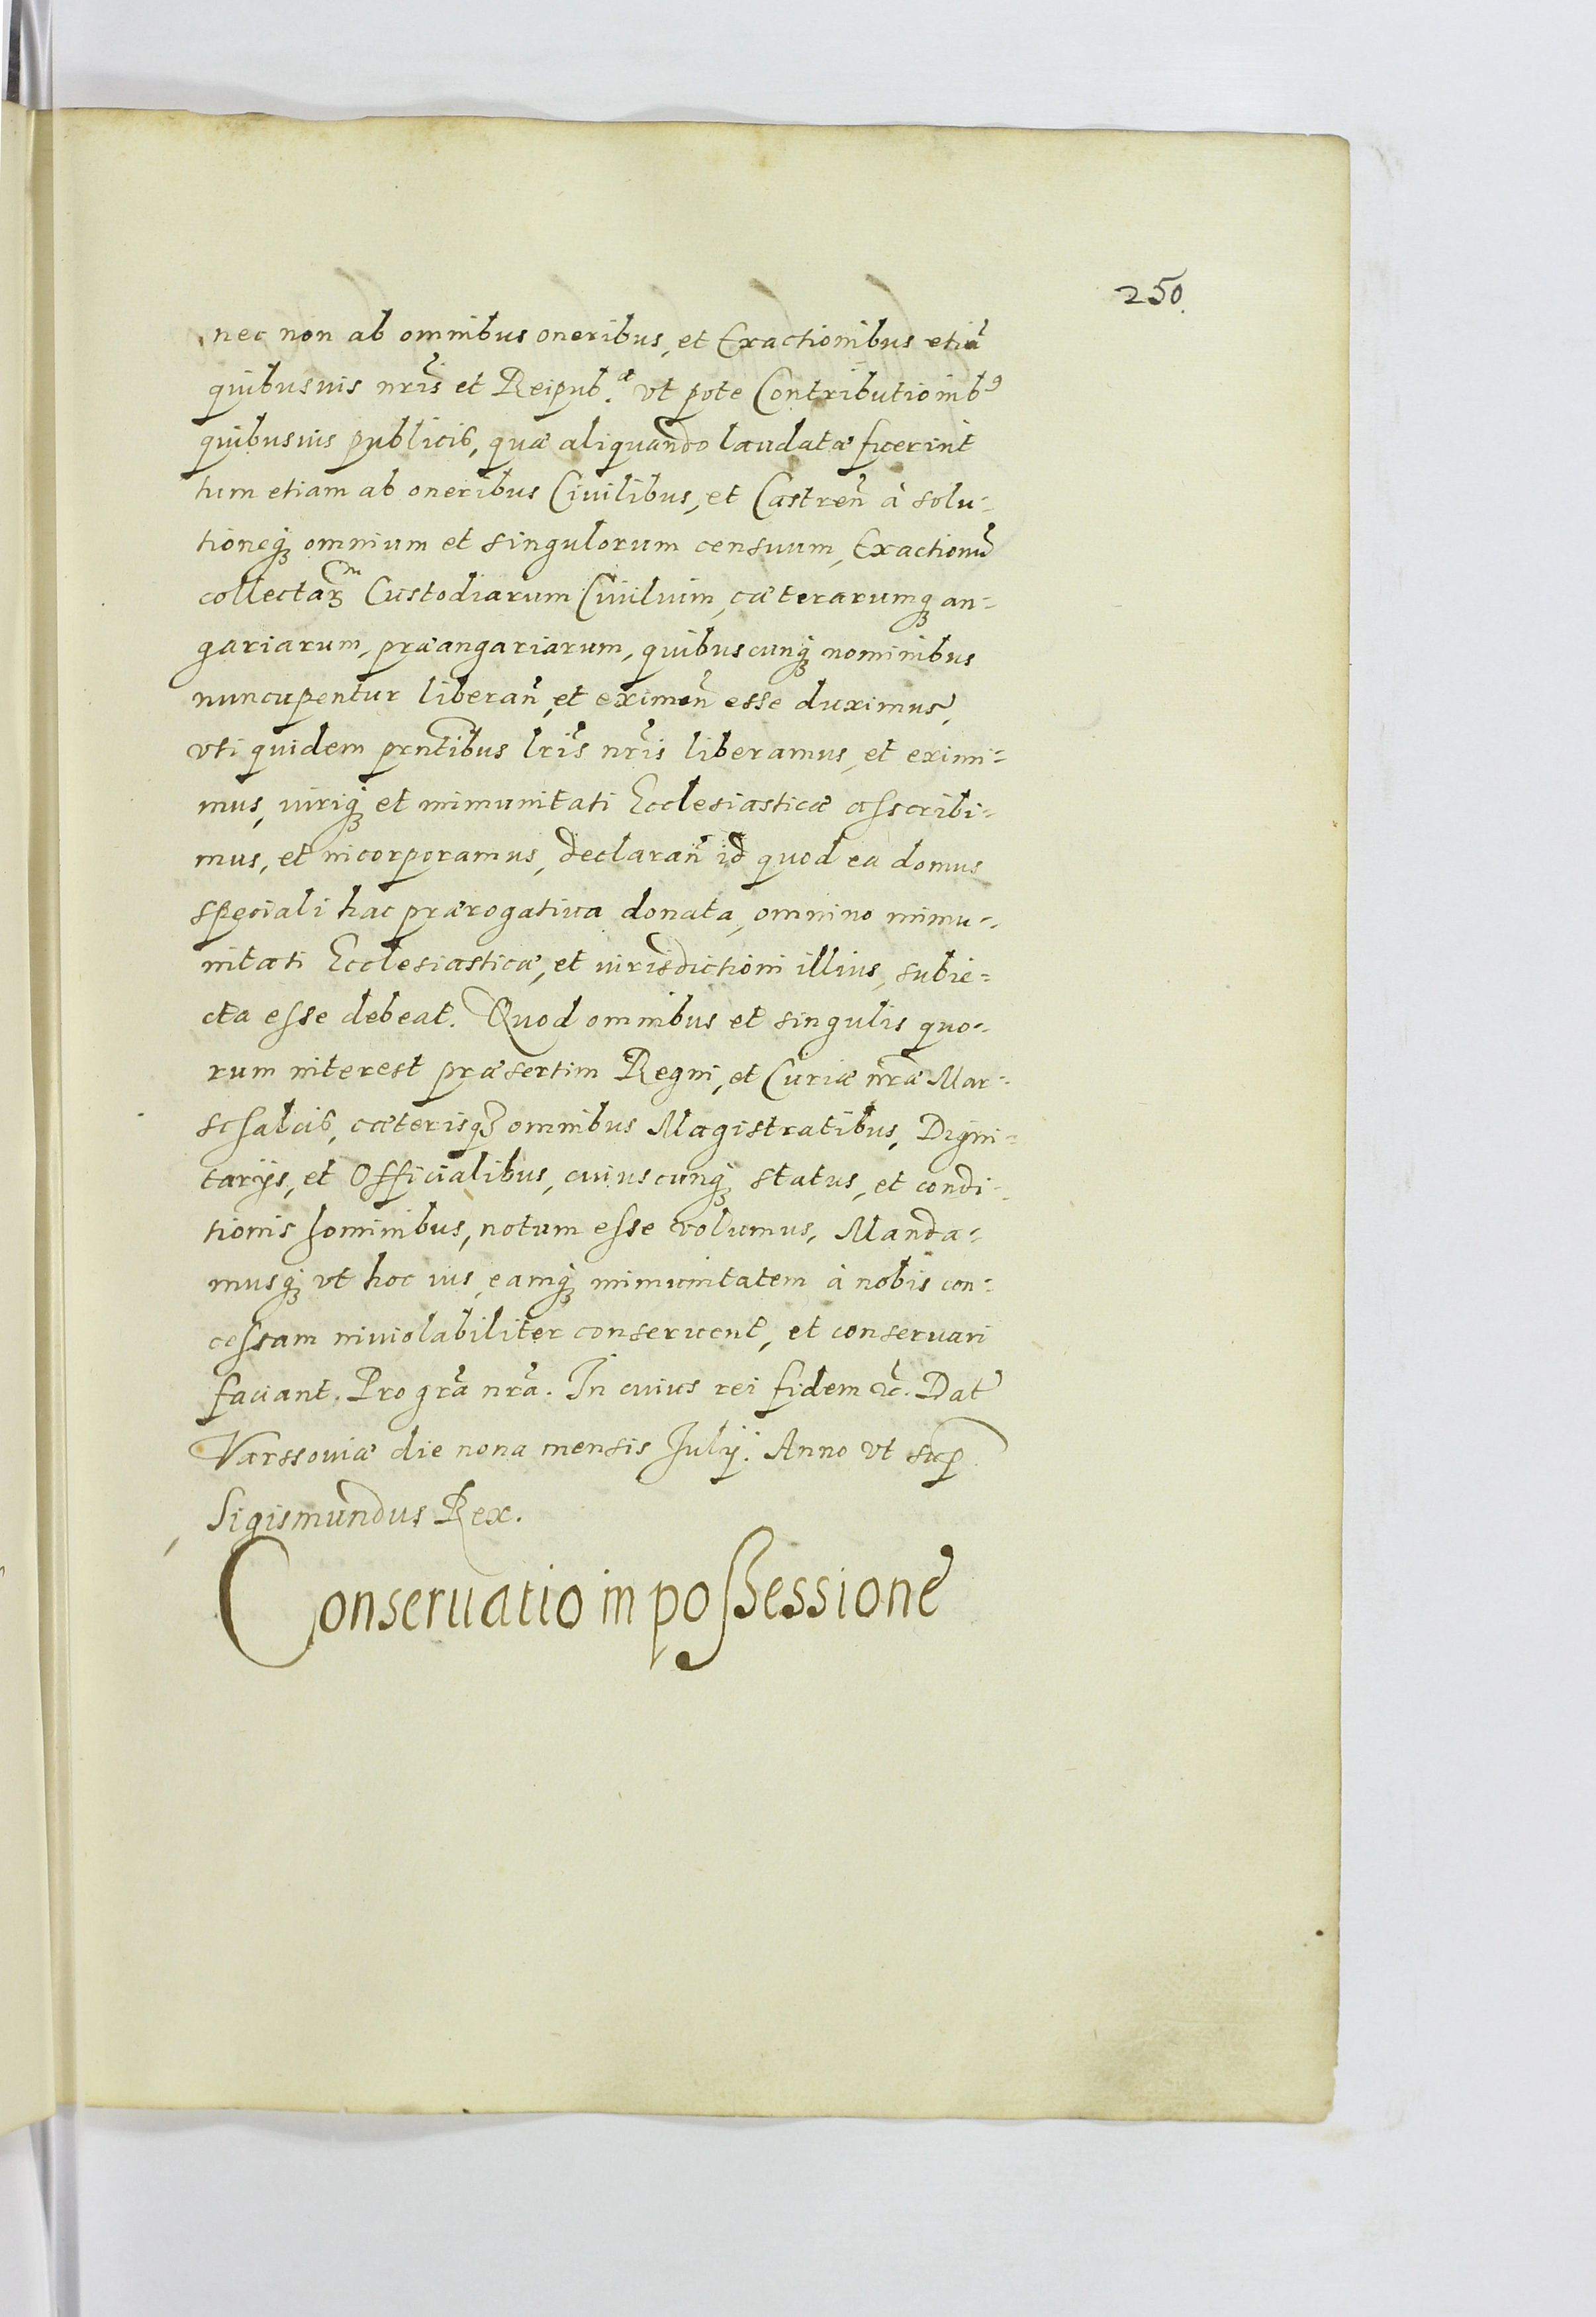 250.
nec non ab omnibus oneribus, et Exactionibus etiã
quibusuis nr̃is et Reipub.æ vt pote Contributionibꝰ
quibusuis publicis, quæ aliquando laudatæ fuerint
tum etiam ab oneribus Ciuilibus, et Castreñ à solu-
tioneq; omnium et singulorum censuum, Exactionũ
collectarum Custodiarum Ciuilium, cæterarumq; an-
gariarum, præangariarum, quibuscunq; nominibus
nuncupentur liberañ, et eximeñ esse duximus,
vti quidem pr̃ntibus lr̃is nr̃is liberamus, et eximi-
mus, iuriq; et immunitati Ecclesiasticæ asscribi-
mus, et incorporamus, declarañ id quod ea domus
speciali hac prærogatiua donata, omnino immu-
nitati Ecclesiasticæ, et iurisdictioni illius, subie-
cta esse debeat. Quod omnibus et singulis quo-
rum interest præsertim Regni, et Curiæ nr̃æ Mar-
schalcis, cæterisq; omnibus Magistratibus, Digni-
tarijs, et Officialibus, cuiuscunq; status, et condi-
tionis hominibus, notum esse volumus, Manda-
musq; vt hoc ius, eamq; immunitatem à nobis con-
cessam inuiolabiliter conseruent, et conseruari
faciant. Pro gr̃a nr̃a. In cuius rei fidem ꝛc̃. Dat
Varssouiæ die nona mensis Julij. Anno vt sup
Sigismundus Rex.
Conseruatio in possessione